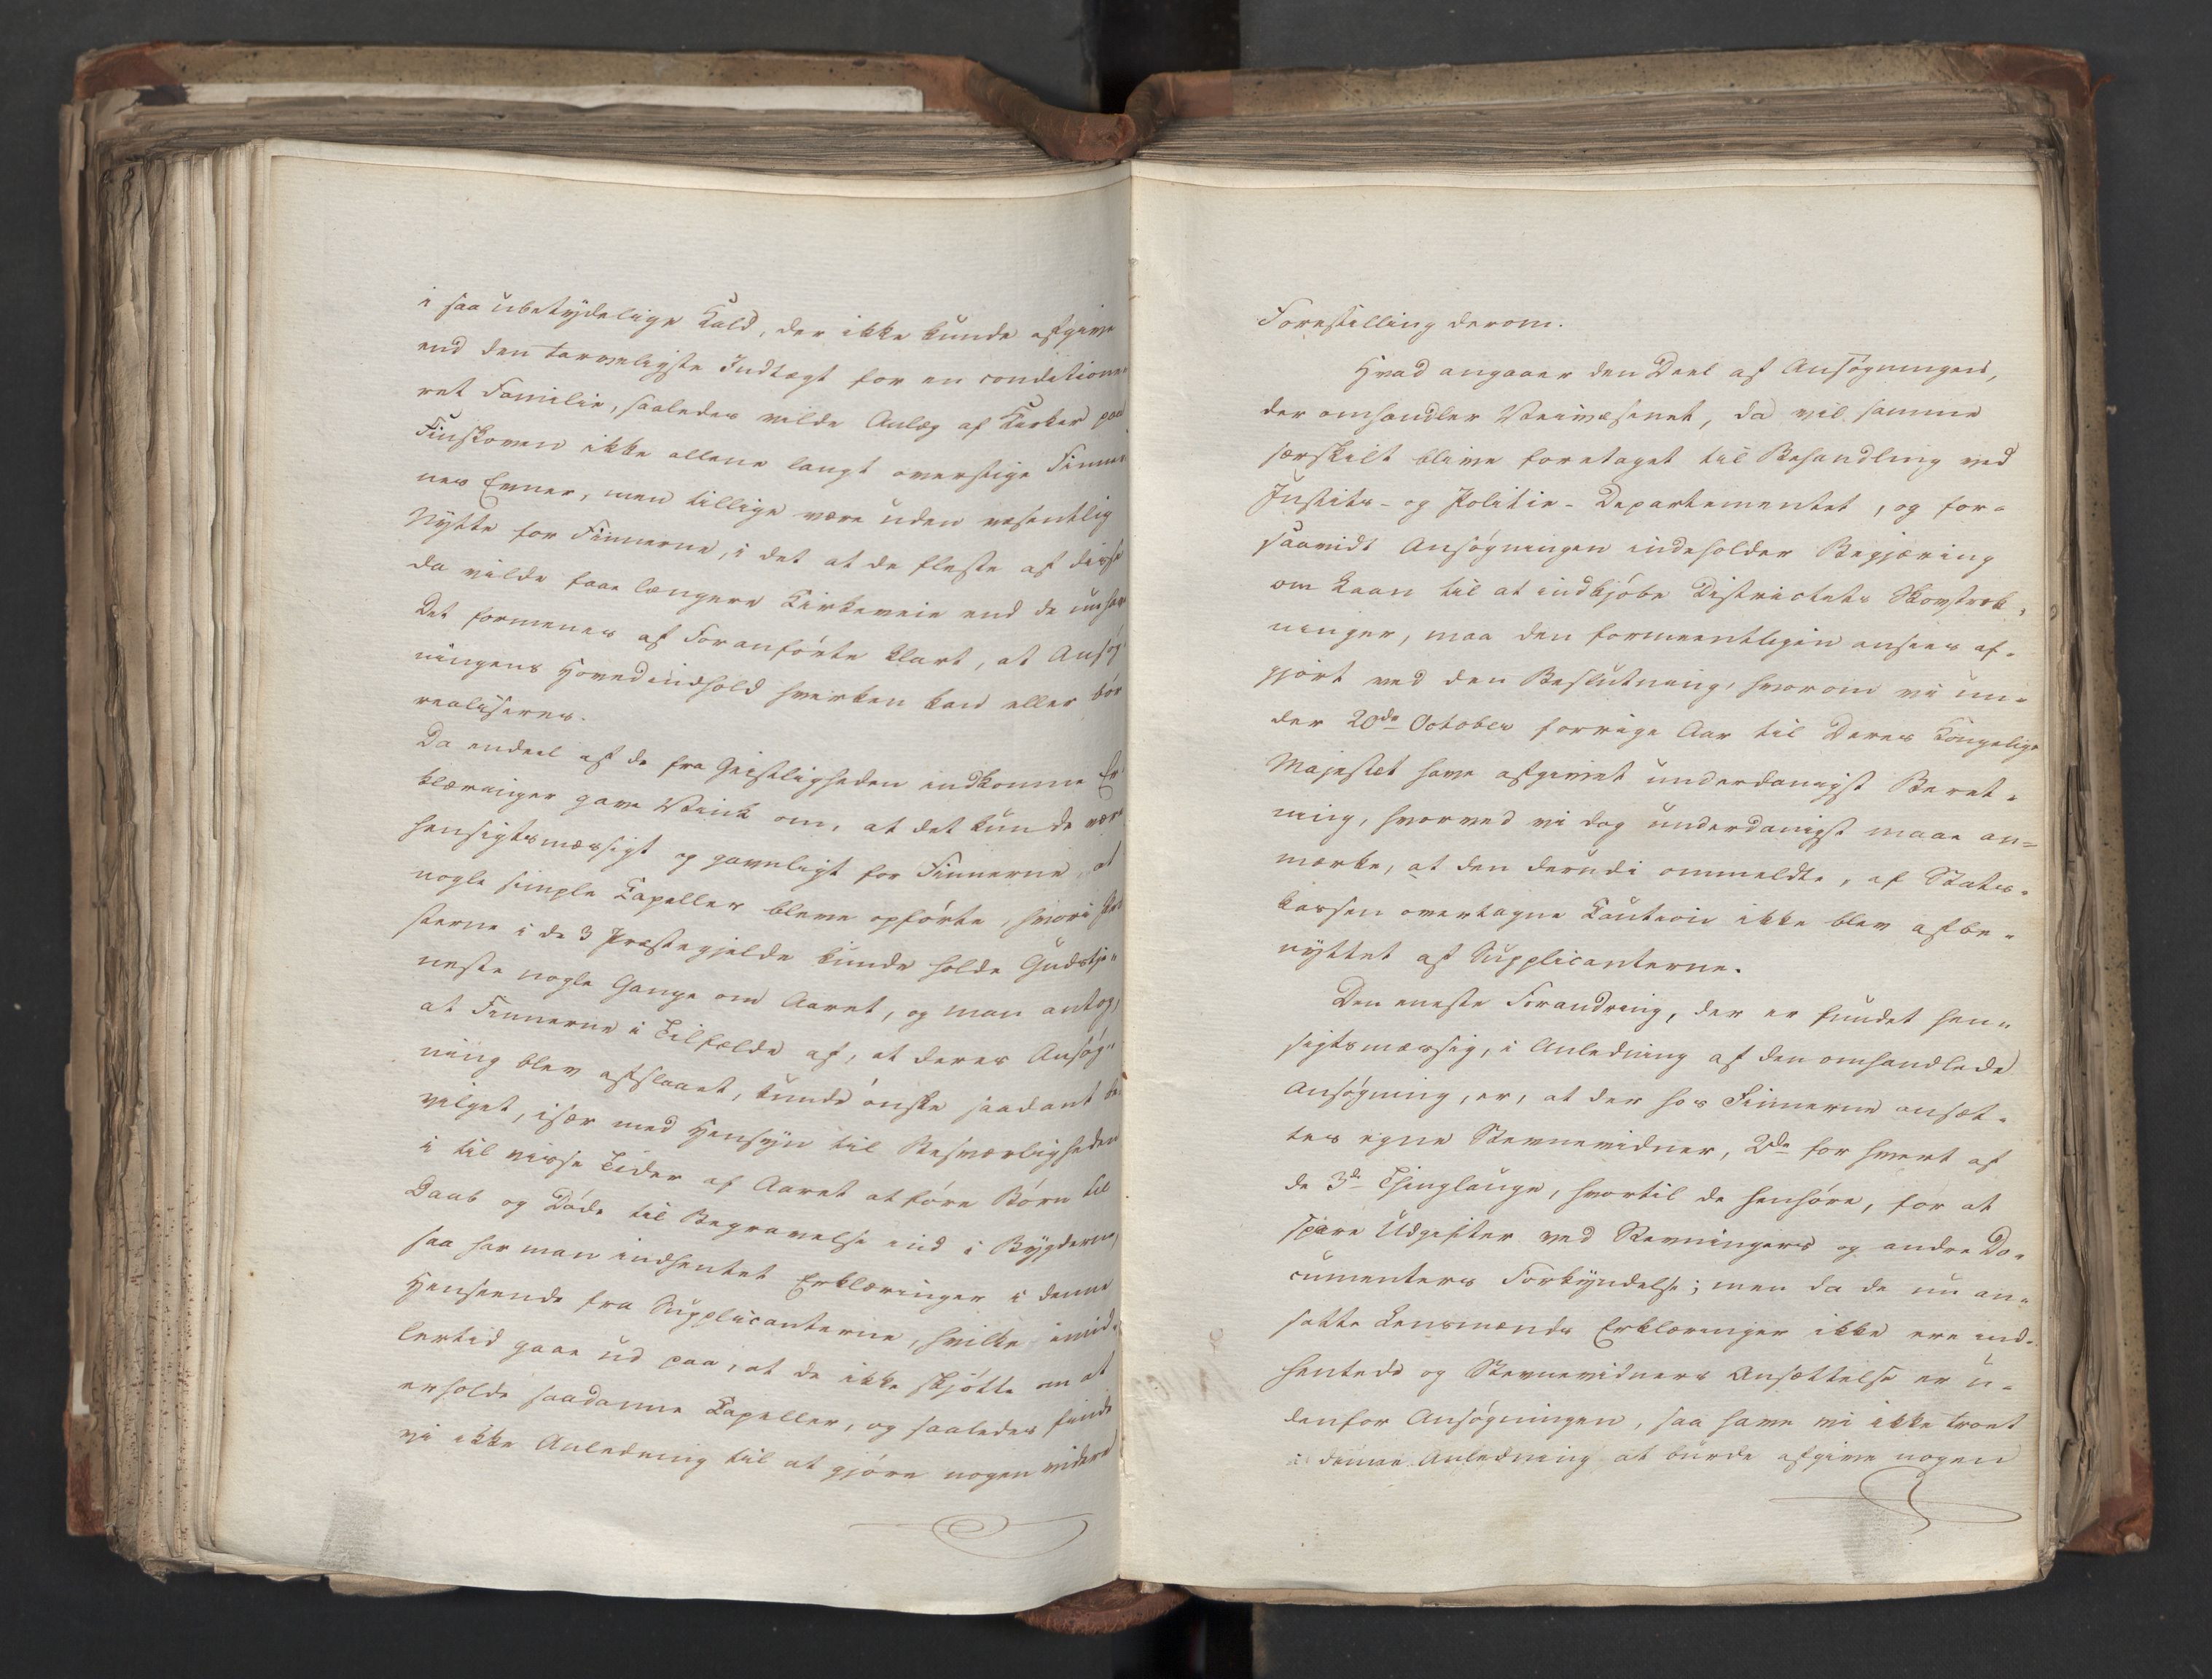 i saa ubetydelige Kald, der ikke kunde afgive
end den tarveligste Indtægt for en conditione-
ret Familie, saaledes vilde Anlæg af Kirker paa
Finskoven ikke allene langt overstige Finner-
nes Evner, men tillige være uden væsentlig
Nytte for Finnerne, i det at de fleste af disse
da vilde faae længere Kirkeveie end de nu have
Det formenes af Foranførte klart, at Ansøg-
ningens Hovedindhold hverken kan eller bør
realiseres.
Da endeel af de fra Geistligheden indkomne Er-
klæringer gave Vink om, at det kunde være
hensigtsmæssigt og gavnligt for Finnerne, at
nogle simple Kapeller bleve opførte, hvori Præ-
sterne i de 3 Præstegjelde kunde holde Gudstje-
neste nogle Gange om Aaret, og man antog,
at Finnerne i Tilfælde af, at deres Ansøg-
ning blev afslaaet, kunde ønske saadant be-
vilget, især med Hensyn til Besværligheden
i til visse Tider af Aaret at føre Børn til
Daab og Døde til Begravelse ind i Bygderne,
saa har man indhentet Erklæringer i denne
Henseende fra Supplicanterne, hvilke imid-
lertid gaae ud paa, at de ikke skjøtte om at
erholde saadanne Kapeller, og saaledes finde
vi ikke Anledning til at gjøre nogen videre
Forestilling derom.
Hvad angaaer den Deel af Ansøgningen,
der omhandler Veivæsenet, da vil samme
særskilt blive foretaget til Behandling ved
Justits- og Politie-Departementet, og for-
saavidt Ansøgningen indeholder Begjæring
om Laan til at indkjøbe Districtets Skovstræk-
ninger, maa den formeentligen ansees af-
gjort ved den Beslutning, hvorom vi un-
der 20de October forrige Aar til Deres Kongelige
Majestæt have afgivet underdanigst Beret-
ning, hvorved vi dog underdanigst maae an-
mærke, at den derudi ommeldte, af Stats-
kassen overtagne Caution ikke blev afbe-
nyttet af Supplicanterne.
Den eneste Forandring, der er fundet hen-
sigtsmæssig, i Anledning af den omhandlede
Ansøgning, er, at der hos Finnerne ansæt-
tes egne Stevnevidner, 2de for hvert af
de 3de Thinglauge, hvortil de henhøre, for at
spare Udgifter ved Stevningers og andre Do-
cumenters Forkyndelse; men da de nu an-
satte Lensmænds Erklæringer ikke ere ind-
hentede og Stevnevidners Ansættelse er u-
denfor Ansøgningen, saa have vi ikke troet
i denne Anledning at burde afgive nogen